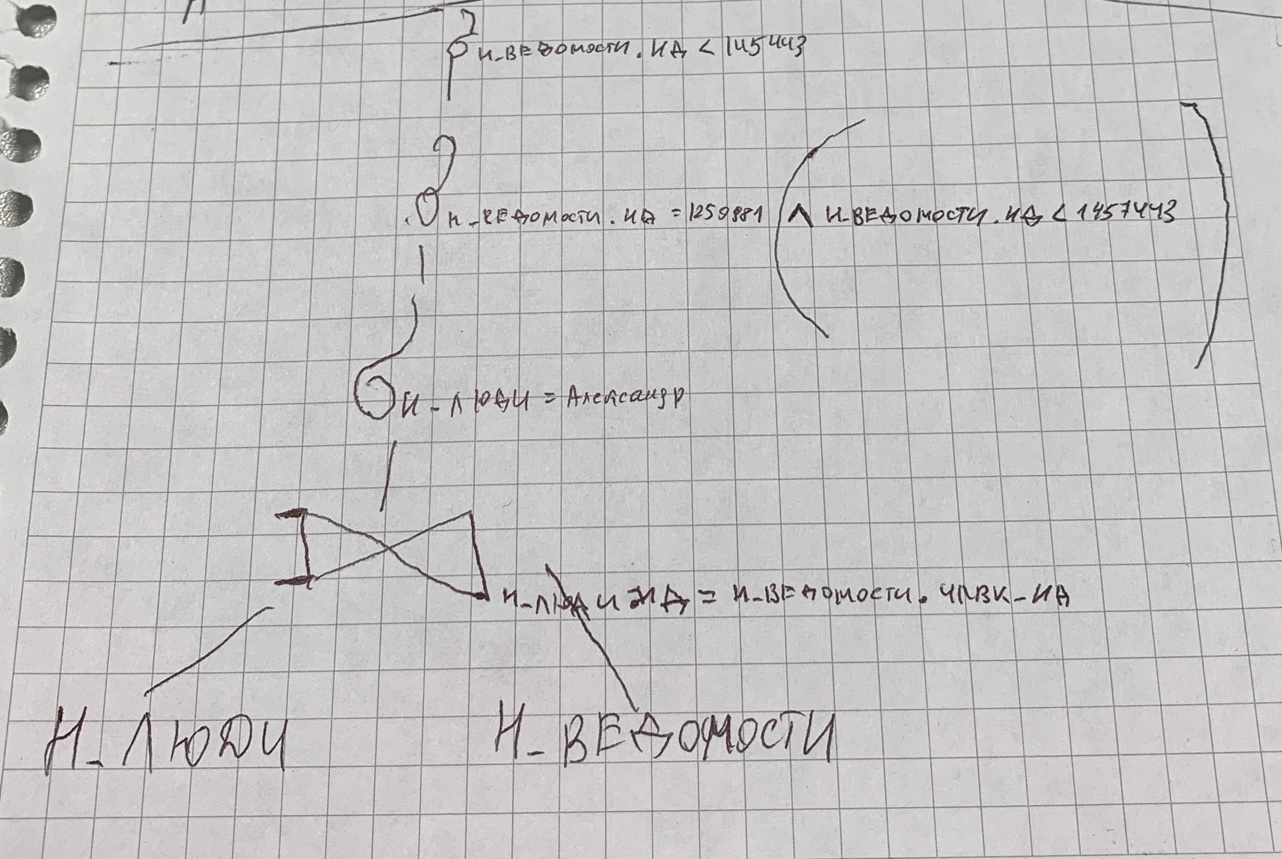 Н_ВЕДОМОСТИ.ИД < 145443
Н_ВЕДОМОСТИ.ИД = 1250981 ( ∧ Н_ВЕДОМОСТИ.ИД < 1457443 )
Н_ЛЮДИ = Александр
Н_ЛЮДИ.ИД = Н_ВЕДОМОСТИ.ЧЛВК_ИД
Н_ЛЮДИ Н_ВЕДОМОСТИ